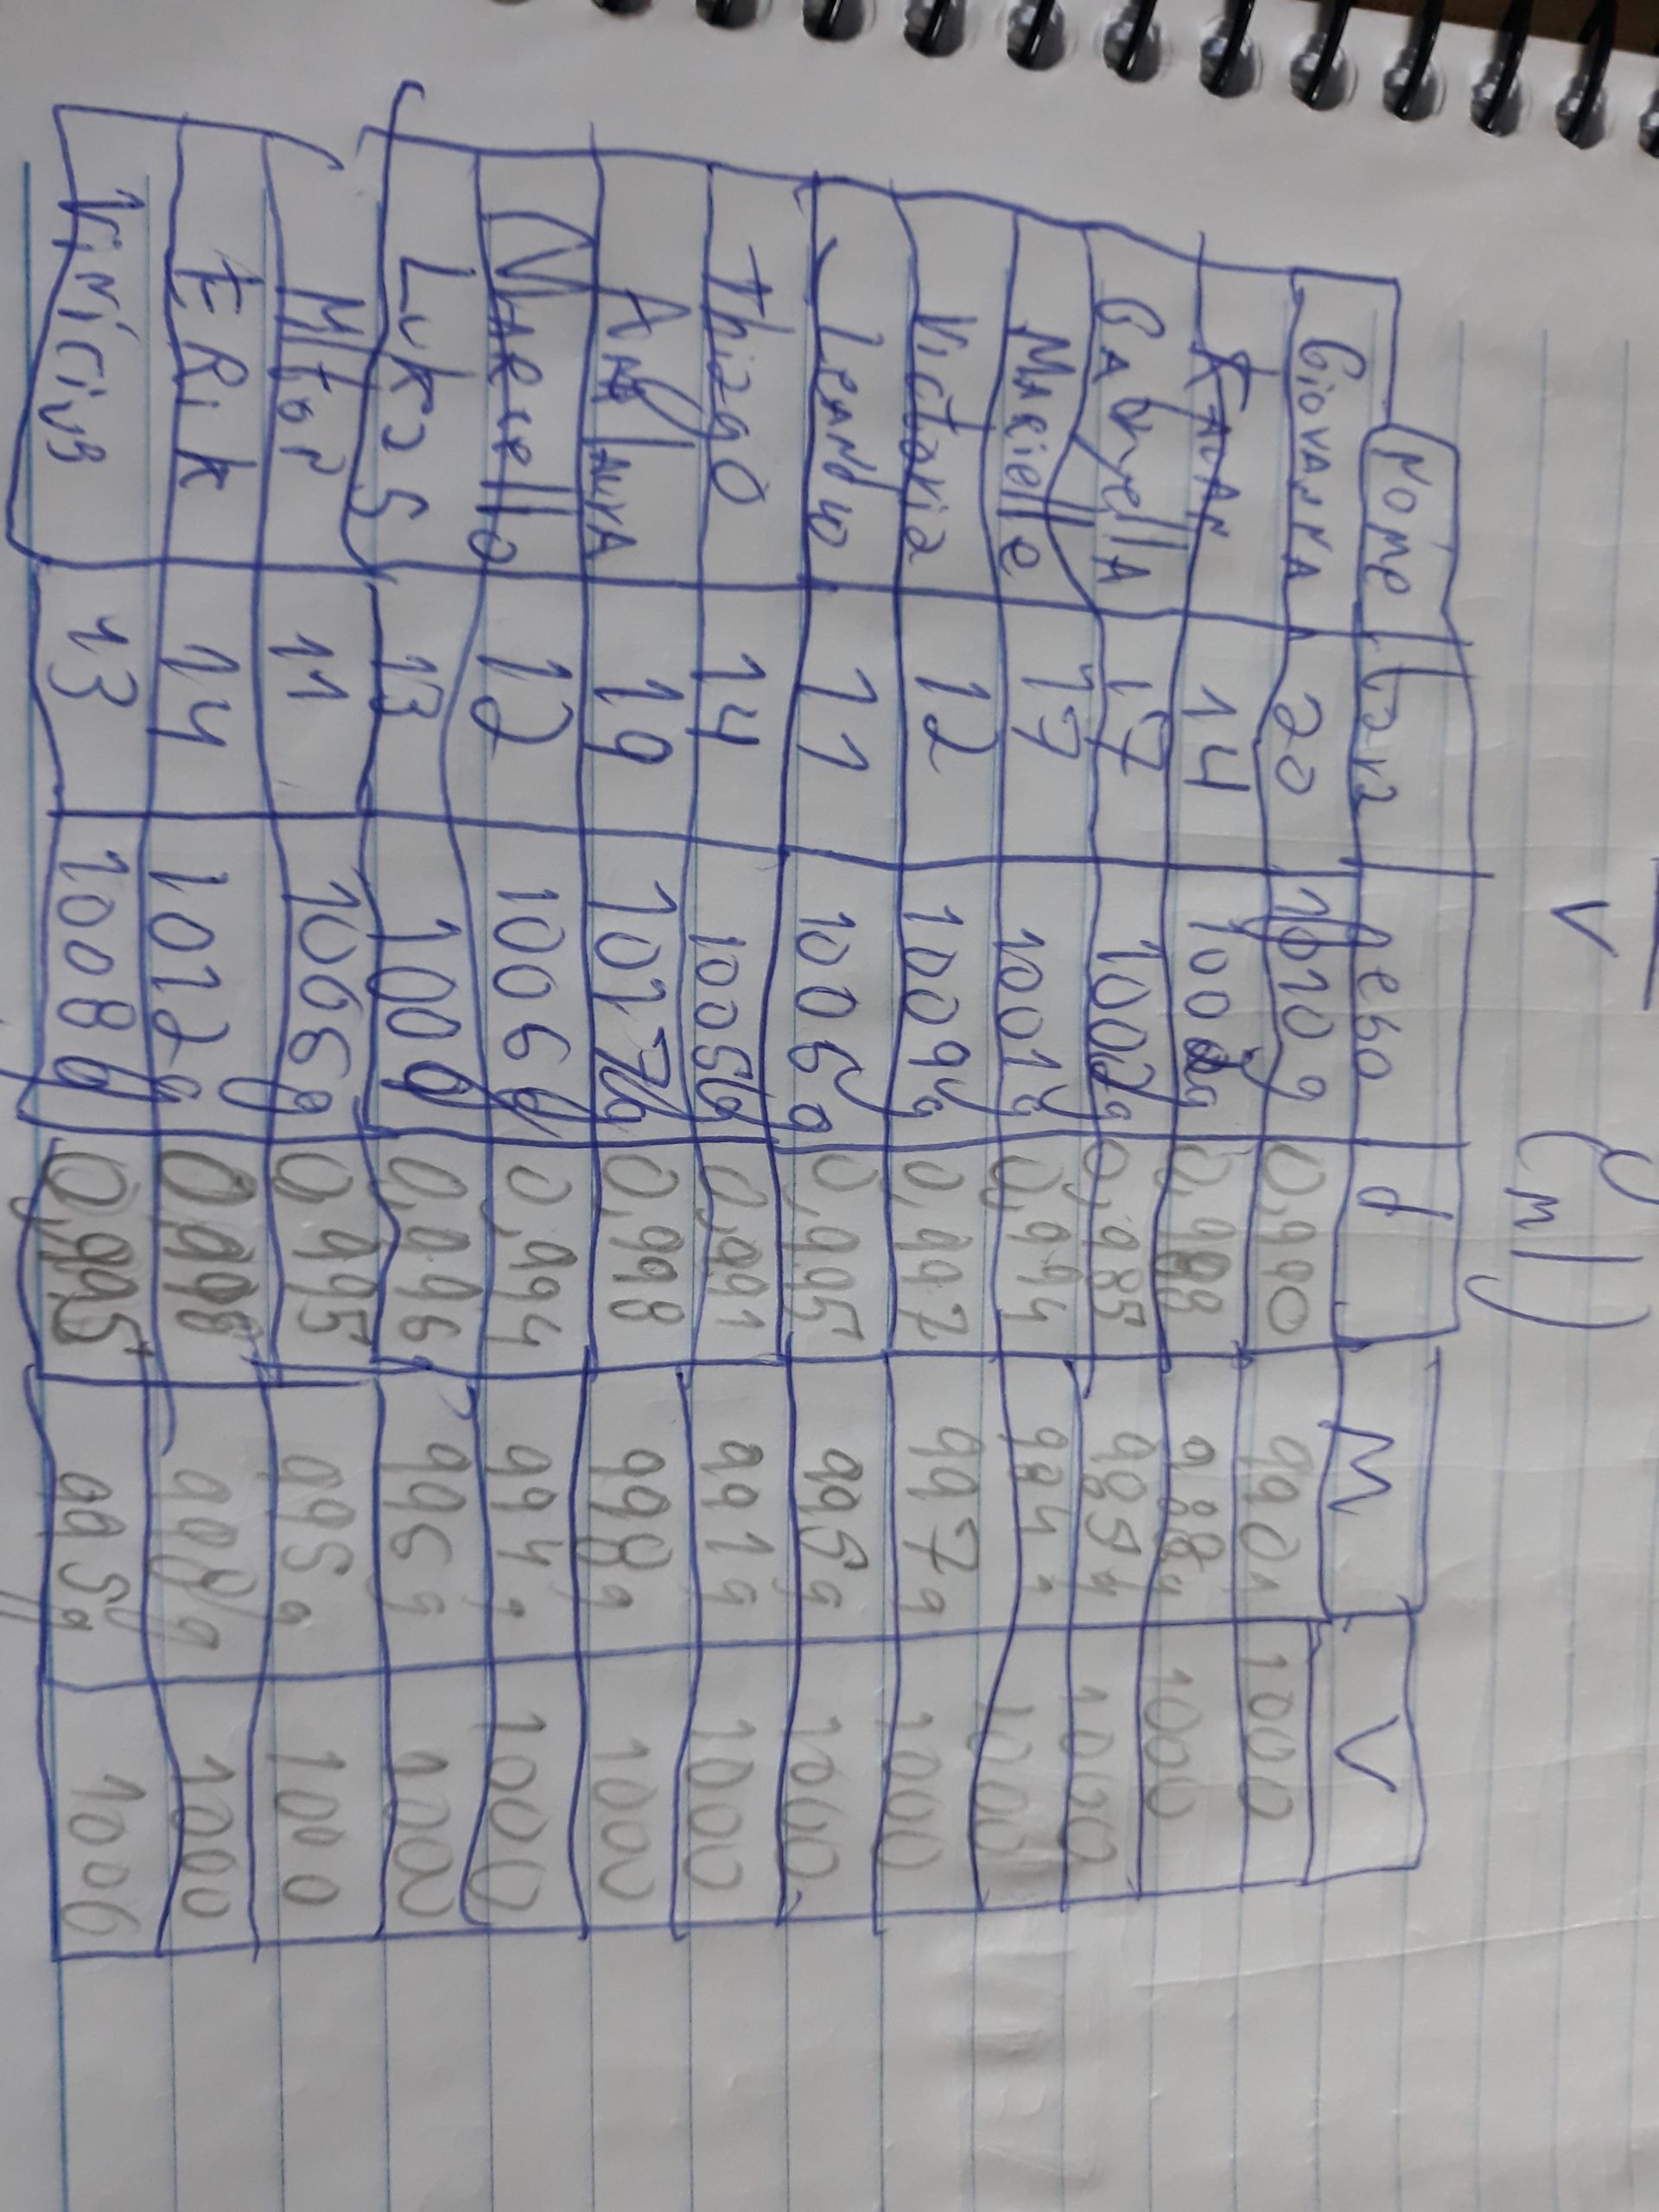 V (ml)
Nome Tara Peso d M V
GiovANNA 20 1010g 0,990 990g 1000
KAUAN 14 1002g 0,988 988g 1000
GAbryellA 17 1002g 0,985 985g 1000
MARielle 17 1001g 0,994 984g 1000
Victoria 12 1009g 0,997 997g 1000
LeANdro 11 1006g 0,995 995g 1000
Thiago 14 1005g 0,991 991g 1000
ANA 19 1017g 0,998 998g 1000
MARcello 12 1006g 0,994 994g 1000
Lukas 13 1009 0,996 996g 1000
MiltoN 11 1006g 0,995 995g 1000
ERik 14 1012g 0,998 998g 1000
ViNíCiuS 13 1008g 0,995 995g 1000